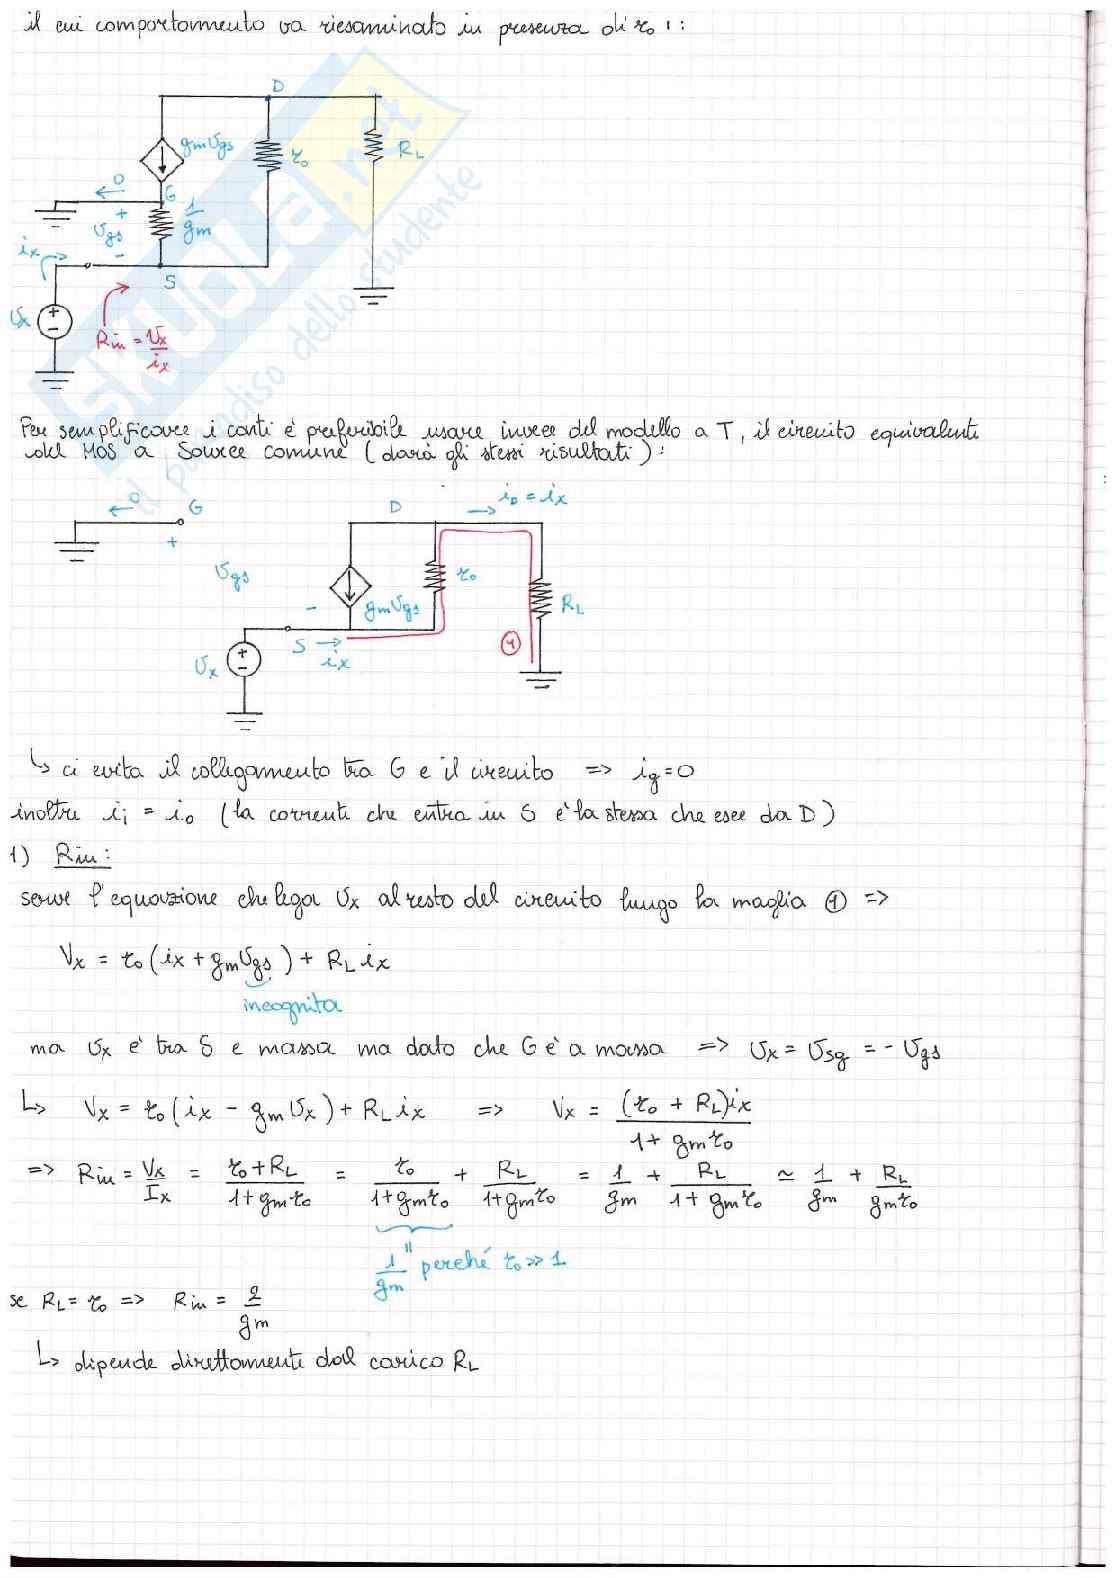 il cui comportamento va riesaminato in presenza di r₀ :
D
gmVgs
r₀
RL
0
G
+
1/gm
Vgs
-
ix
S
Vx
+
-
Rin = Vx/ix
Per semplificare i conti è preferibile usare invece del modello a T, il circuito equivalente
del MOS a Source comune (darà gli stessi risultati):
0
G
D
iD = ix
+
Vgs
r₀
-
gmVgs
RL
S
ix
1
Vx
+
-
↳ ci evita il collegamento tra G e il circuito => ig=0
inoltre ii = io (la corrente che entra in S è la stessa che esce da D)
1) Rin:
serve l'equazione che lega Vx al resto del circuito lungo la maglia ① =>
Vx = r₀(ix + gmVgs) + RL ix
incognita
ma Vx è tra S e massa ma dato che G è a massa => Vx = Vsg = - Vgs
↳ Vx = r₀(ix - gmVx) + RL ix => Vx = (r₀ + RL)ix / 1 + gmr₀
=> Rin = Vx/Ix = r₀+RL / 1+gmr₀ = r₀ / 1+gmr₀ + RL / 1+gmr₀ = 1/gm + RL / 1+gmr₀ ≃ 1/gm + RL / gmr₀
" 1/gm perché r₀ >> 1
se RL = r₀ => Rin = 2/gm
↳ dipende direttamente dal carico RL
SKUOLA.net
il paradiso dello studente